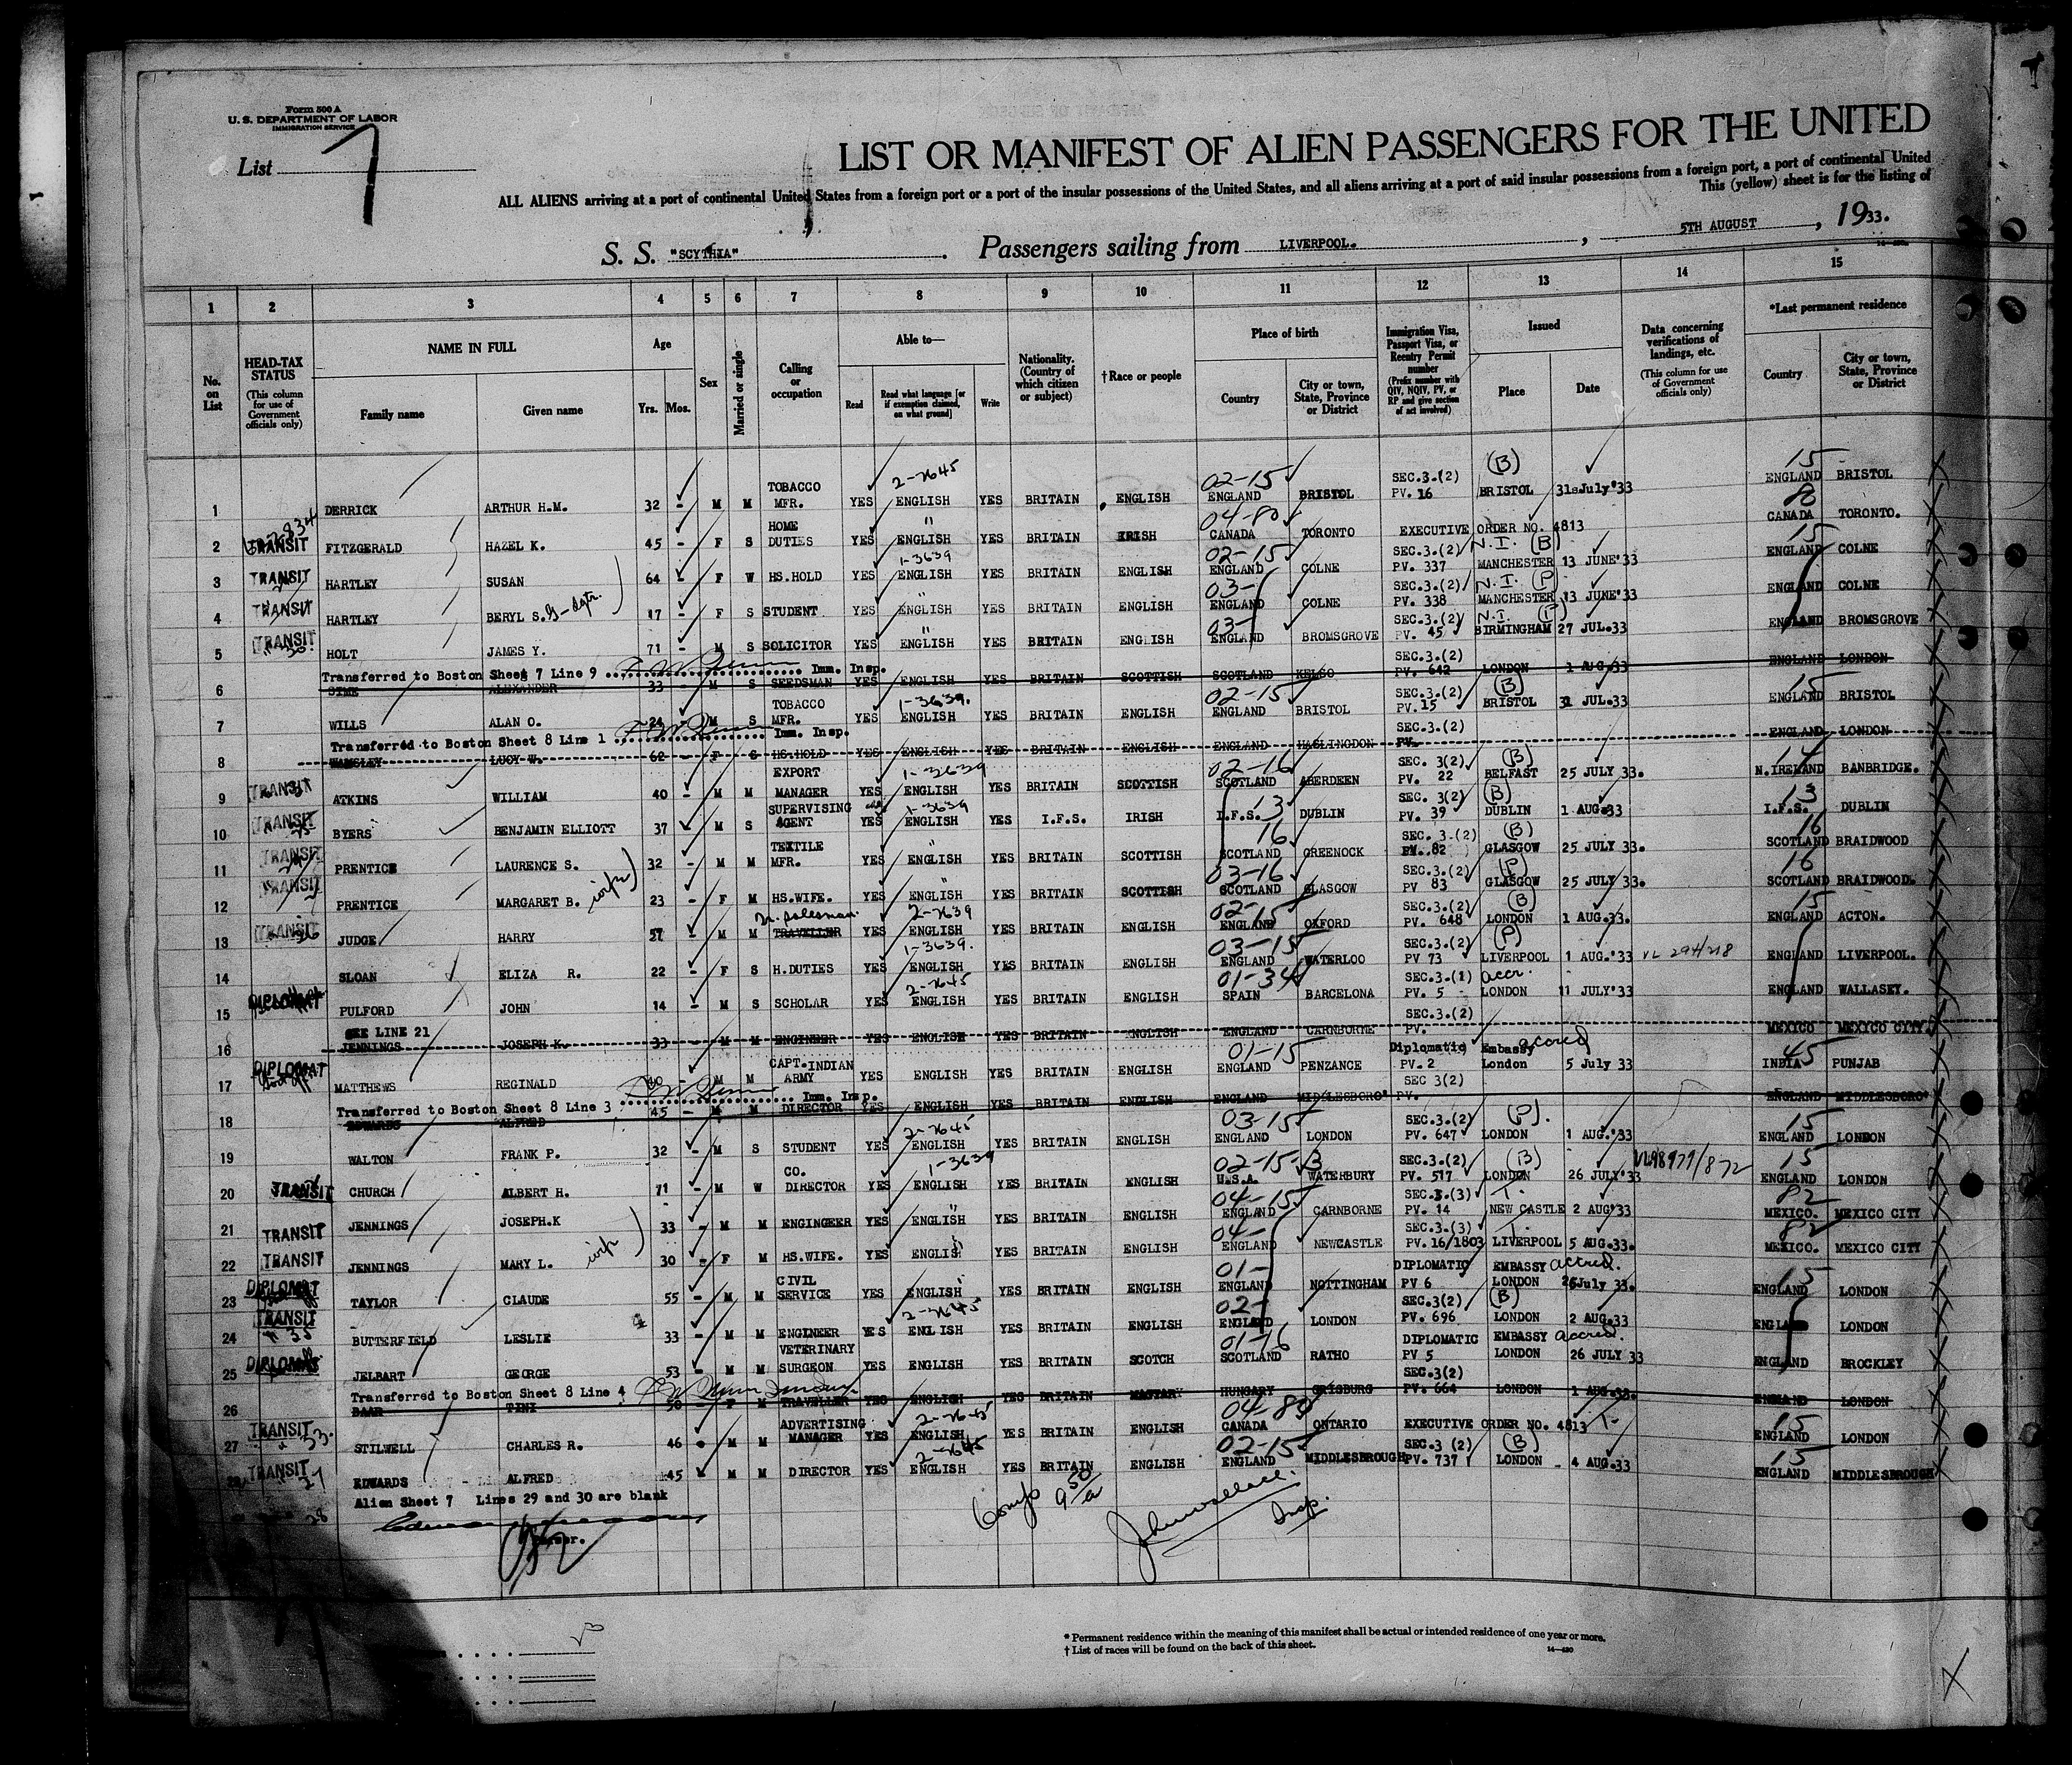 Form 500 A
U. S. DEPARTMENT OF LABOR
IMMIGRATION SERVICE
List 7
LIST OR MANIFEST OF ALIEN PASSENGERS FOR THE UNITED
ALL ALIENS arriving at a port of continental United States from a foreign port or a port of the insular possessions of the United States, and all aliens arriving at a port of said insular possessions from a foreign port, a port of continental United
This (yellow) sheet is for the listing of
S. S. "SCYTHIA" . Passengers sailing from LIVERPOOL. , 5TH AUGUST , 1933.
1 2 3 4 5 6 7 8 9 10 11 12 13 14 15
No. on List
HEAD-TAX STATUS (This column for use of Government officials only)
NAME IN FULL Family name Given name
Age Yrs. Mos.
Sex
Married or single
Calling or occupation
Able to— Read Read what language [or if exemption claimed, on what ground] Write
Nationality. (Country of which citizen or subject)
†Race or people
Place of birth Country City or town, State, Province or District
Immigration Visa, Passport Visa, or Reentry Permit number (Prefix number with QIV, NQIV, PV, or RP and give section of act involved)
Issued Place Date
Data concerning verifications of landings, etc. (This column for use of Government officials only)
*Last permanent residence Country City or town, State, Province or District
1 DERRICK ARTHUR H.M. 32 - M M TOBACCO MFR. YES 2-7645 ENGLISH YES BRITAIN ENGLISH 02-15 ENGLAND BRISTOL SEC.3.(2) PV. 16 (B) BRISTOL 31sJuly'33 15 ENGLAND BRISTOL
2 TRANSIT FITZGERALD HAZEL K. 45 - F S HOME DUTIES YES " ENGLISH YES BRITAIN IRISH 04-80 CANADA TORONTO EXECUTIVE ORDER NO. 4813 80 CANADA TORONTO.
3 TRANSIT HARTLEY SUSAN 64 - F W HS.HOLD YES 1-3639 ENGLISH YES BRITAIN ENGLISH 02-15 ENGLAND COLNE SEC.3.(2) PV. 337 N.I. (B) MANCHESTER 13 JUNE'33 15 ENGLAND COLNE
4 TRANSIT HARTLEY BERYL S. G-dgtr. 17 - F S STUDENT YES " ENGLISH YES BRITAIN ENGLISH 03- ENGLAND COLNE SEC.3.(2) PV. 338 N.I. (P) MANCHESTER 13 JUNE'33 ENGLAND COLNE
5 TRANSIT HOLT JAMES Y. 71 - M S SOLICITOR YES " ENGLISH YES BRITAIN ENGLISH 03- ENGLAND BROMSGROVE SEC.3.(2) PV. 45 N.I. (P) BIRMINGHAM 27 JUL.33 ENGLAND BROMSGROVE
Transferred to Boston Sheet 7 Line 9 Imm. Insp.
6 SYME ALEXANDER 33 - M S SEEDSMAN YES ENGLISH YES BRITAIN SCOTTISH SCOTLAND KELSO SEC.3.(2) PV. 642 LONDON 1 AUG.33 ENGLAND LONDON
7 WILLS ALAN O. 24 - M S TOBACCO MFR. YES 1-3639. ENGLISH YES BRITAIN ENGLISH 02-15 ENGLAND BRISTOL SEC.3.(2) PV.15 (B) BRISTOL 31 JUL.33 15 ENGLAND BRISTOL
Transferred to Boston Sheet 8 Line 1 Imm. Insp.
8 WAMSLEY LUCY W. 62 - F S HS.HOLD YES ENGLISH YES BRITAIN ENGLISH ENGLAND HASLINGDON SEC.3.(2) PV. ENGLAND LONDON
9 TRANSIT ATKINS WILLIAM 40 - M M EXPORT MANAGER YES 1-3639 ENGLISH YES BRITAIN SCOTTISH 02-16 SCOTLAND ABERDEEN SEC. 3(2) PV. 22 (B) BELFAST 25 JULY 33. 14 N.IRELAND BANBRIDGE.
10 TRANSIT BYERS BENJAMIN ELLIOTT 37 M S SUPERVISING AGENT YES 1-3639 ENGLISH YES I.F.S. IRISH 13 I.F.S. DUBLIN SEC. 3(2) PV. 39 (B) DUBLIN 1 AUG.33 13 I.F.S. DUBLIN
11 TRANSIT PRENTICE LAURENCE S. 32 - M M TEXTILE MFR. YES " ENGLISH YES BRITAIN SCOTTISH 16 SCOTLAND GREENOCK SEC. 3.(2) PV. 82 (B) GLASGOW 25 JULY 33. 16 SCOTLAND BRAIDWOOD
12 TRANSIT PRENTICE MARGARET B. wife 23 - F M HS.WIFE. YES " ENGLISH YES BRITAIN SCOTTISH 03-16 SCOTLAND GLASGOW SEC.3.(2) PV 83 (P) GLASGOW 25 JULY 33. 16 SCOTLAND BRAIDWOOD.
13 TRANSIT JUDGE HARRY 57 - M M TRAVELLER salesman. YES 2-7639 ENGLISH YES BRITAIN ENGLISH 02-15 ENGLAND OXFORD SEC.3.(2) PV. 648 (B) LONDON 1 AUG.33. 15 ENGLAND ACTON.
14 SLOAN ELIZA R. 22 - F S H.DUTIES YES 1-3639. ENGLISH YES BRITAIN ENGLISH 03-15 ENGLAND WATERLOO SEC.3.(2) PV 73 (P) LIVERPOOL 1 AUG.'33 VL 294/218 ENGLAND LIVERPOOL.
15 DIPLOMAT PULFORD JOHN 14 - M S SCHOLAR YES 2-7645 ENGLISH YES BRITAIN ENGLISH 01-34 SPAIN BARCELONA SEC.3.(1) PV. 5 accr. LONDON 11 JULY'33 ENGLAND WALLASEY.
SEE LINE 21
16 JENNINGS JOSEPH K. 33 - M M ENGINEER YES ENGLISH YES BRITAIN ENGLISH ENGLAND CARNBORNE SEC.3.(2) PV. MEXICO MEXICO CITY.
17 DIPLOMAT MATTHEWS REGINALD 40 - M M CAPT.INDIAN ARMY YES ENGLISH YES BRITAIN ENGLISH 01-15 ENGLAND PENZANCE Diplomatic PV.2 Embassy accred London 5 July 33 45 INDIA PUNJAB
Transferred to Boston Sheet 8 Line 3 Imm. Insp.
18 EDWARDS ALFRED 45 - M M DIRECTOR YES ENGLISH YES BRITAIN ENGLISH ENGLAND MIDDLESBORO' SEC 3(2) PV. ENGLAND MIDDLESBORO'
19 WALTON FRANK P. 32 - M S STUDENT YES 2-7645 ENGLISH YES BRITAIN ENGLISH 03-15 ENGLAND LONDON SEC.3.(2) PV. 647 (P). LONDON 1 AUG.'33 15 ENGLAND LONDON
20 TRANSIT CHURCH ALBERT H. 71 - M W CO. DIRECTOR YES 1-3639 ENGLISH YES BRITAIN ENGLISH 02-15-B U.S.A. WATERBURY SEC.3.(2) PV. 517 (B) LONDON 26 JULY'33 VL98979/872 15 ENGLAND LONDON
21 TRANSIT JENNINGS JOSEPH.K 33 - M M ENGINGEER YES " ENGLISH YES BRITAIN ENGLISH 04-15 ENGLAND CARNBORNE SEC.3.(3) PV. 14 T. NEW CASTLE 2 AUG'33 82 MEXICO. MEXICO CITY
22 TRANSIT JENNINGS MARY L. wife 30 - F M HS.WIFE. YES ENGLISH YES BRITAIN ENGLISH 04- ENGLAND NEWCASTLE SEC.3.(3) PV. 16/1803 T. LIVERPOOL 5 AUG.33. 82 MEXICO. MEXICO CITY
23 DIPLOMAT TAYLOR CLAUDE 55 - M M CIVIL SERVICE YES ENGLISH YES BRITAIN ENGLISH 01- ENGLAND NOTTINGHAM DIPLOMATIC PV 6 EMBASSY accred. LONDON 26July 33. 15 ENGLAND LONDON
24 TRANSIT BUTTERFIELD LESLIE 33 - M M ENGINEER YES 2-7645 ENGLISH YES BRITAIN ENGLISH 02- ENGLAND LONDON SEC.3(2) PV. 696 (B) LONDON 2 AUG.33 ENGLAND LONDON
25 DIPLOMAT JELBART GEORGE 53 - M M VETERINARY SURGEON YES ENGLISH YES BRITAIN SCOTCH 01-16 SCOTLAND RATHO DIPLOMATIC PV 5 EMBASSY accred. LONDON 26 JULY 33 ENGLAND BROCKLEY
Transferred to Boston Sheet 8 Line 4
26 BAAR TINI 50 - F M TRAVELLER YES ENGLISH YES BRITAIN MAGYARY HUNGARY SEC.3(2) PV. 664 LONDON 1 AUG.33. ENGLAND LONDON
27 TRANSIT STILWELL CHARLES R. 46 M M ADVERTISING MANAGER YES 2-7645 ENGLISH YES BRITAIN ENGLISH 04-80 CANADA ONTARIO EXECUTIVE ORDER NO. 4813 T- 15 ENGLAND LONDON
28 TRANSIT EDWARDS ALFRED 45 M M DIRECTOR YES 2-7645 ENGLISH YES BRITAIN ENGLISH 02-15 ENGLAND MIDDLESBROUGH SEC.3 (2) PV. 737 (B) LONDON - 4 AUG.33 15 ENGLAND MIDDLESBROUGH
Alien Sheet 7 Lines 29 and 30 are blank
Purser.
Insp.
* Permanent residence within the meaning of this manifest shall be actual or intended residence of one year or more.
† List of races will be found on the back of this sheet.
14—430